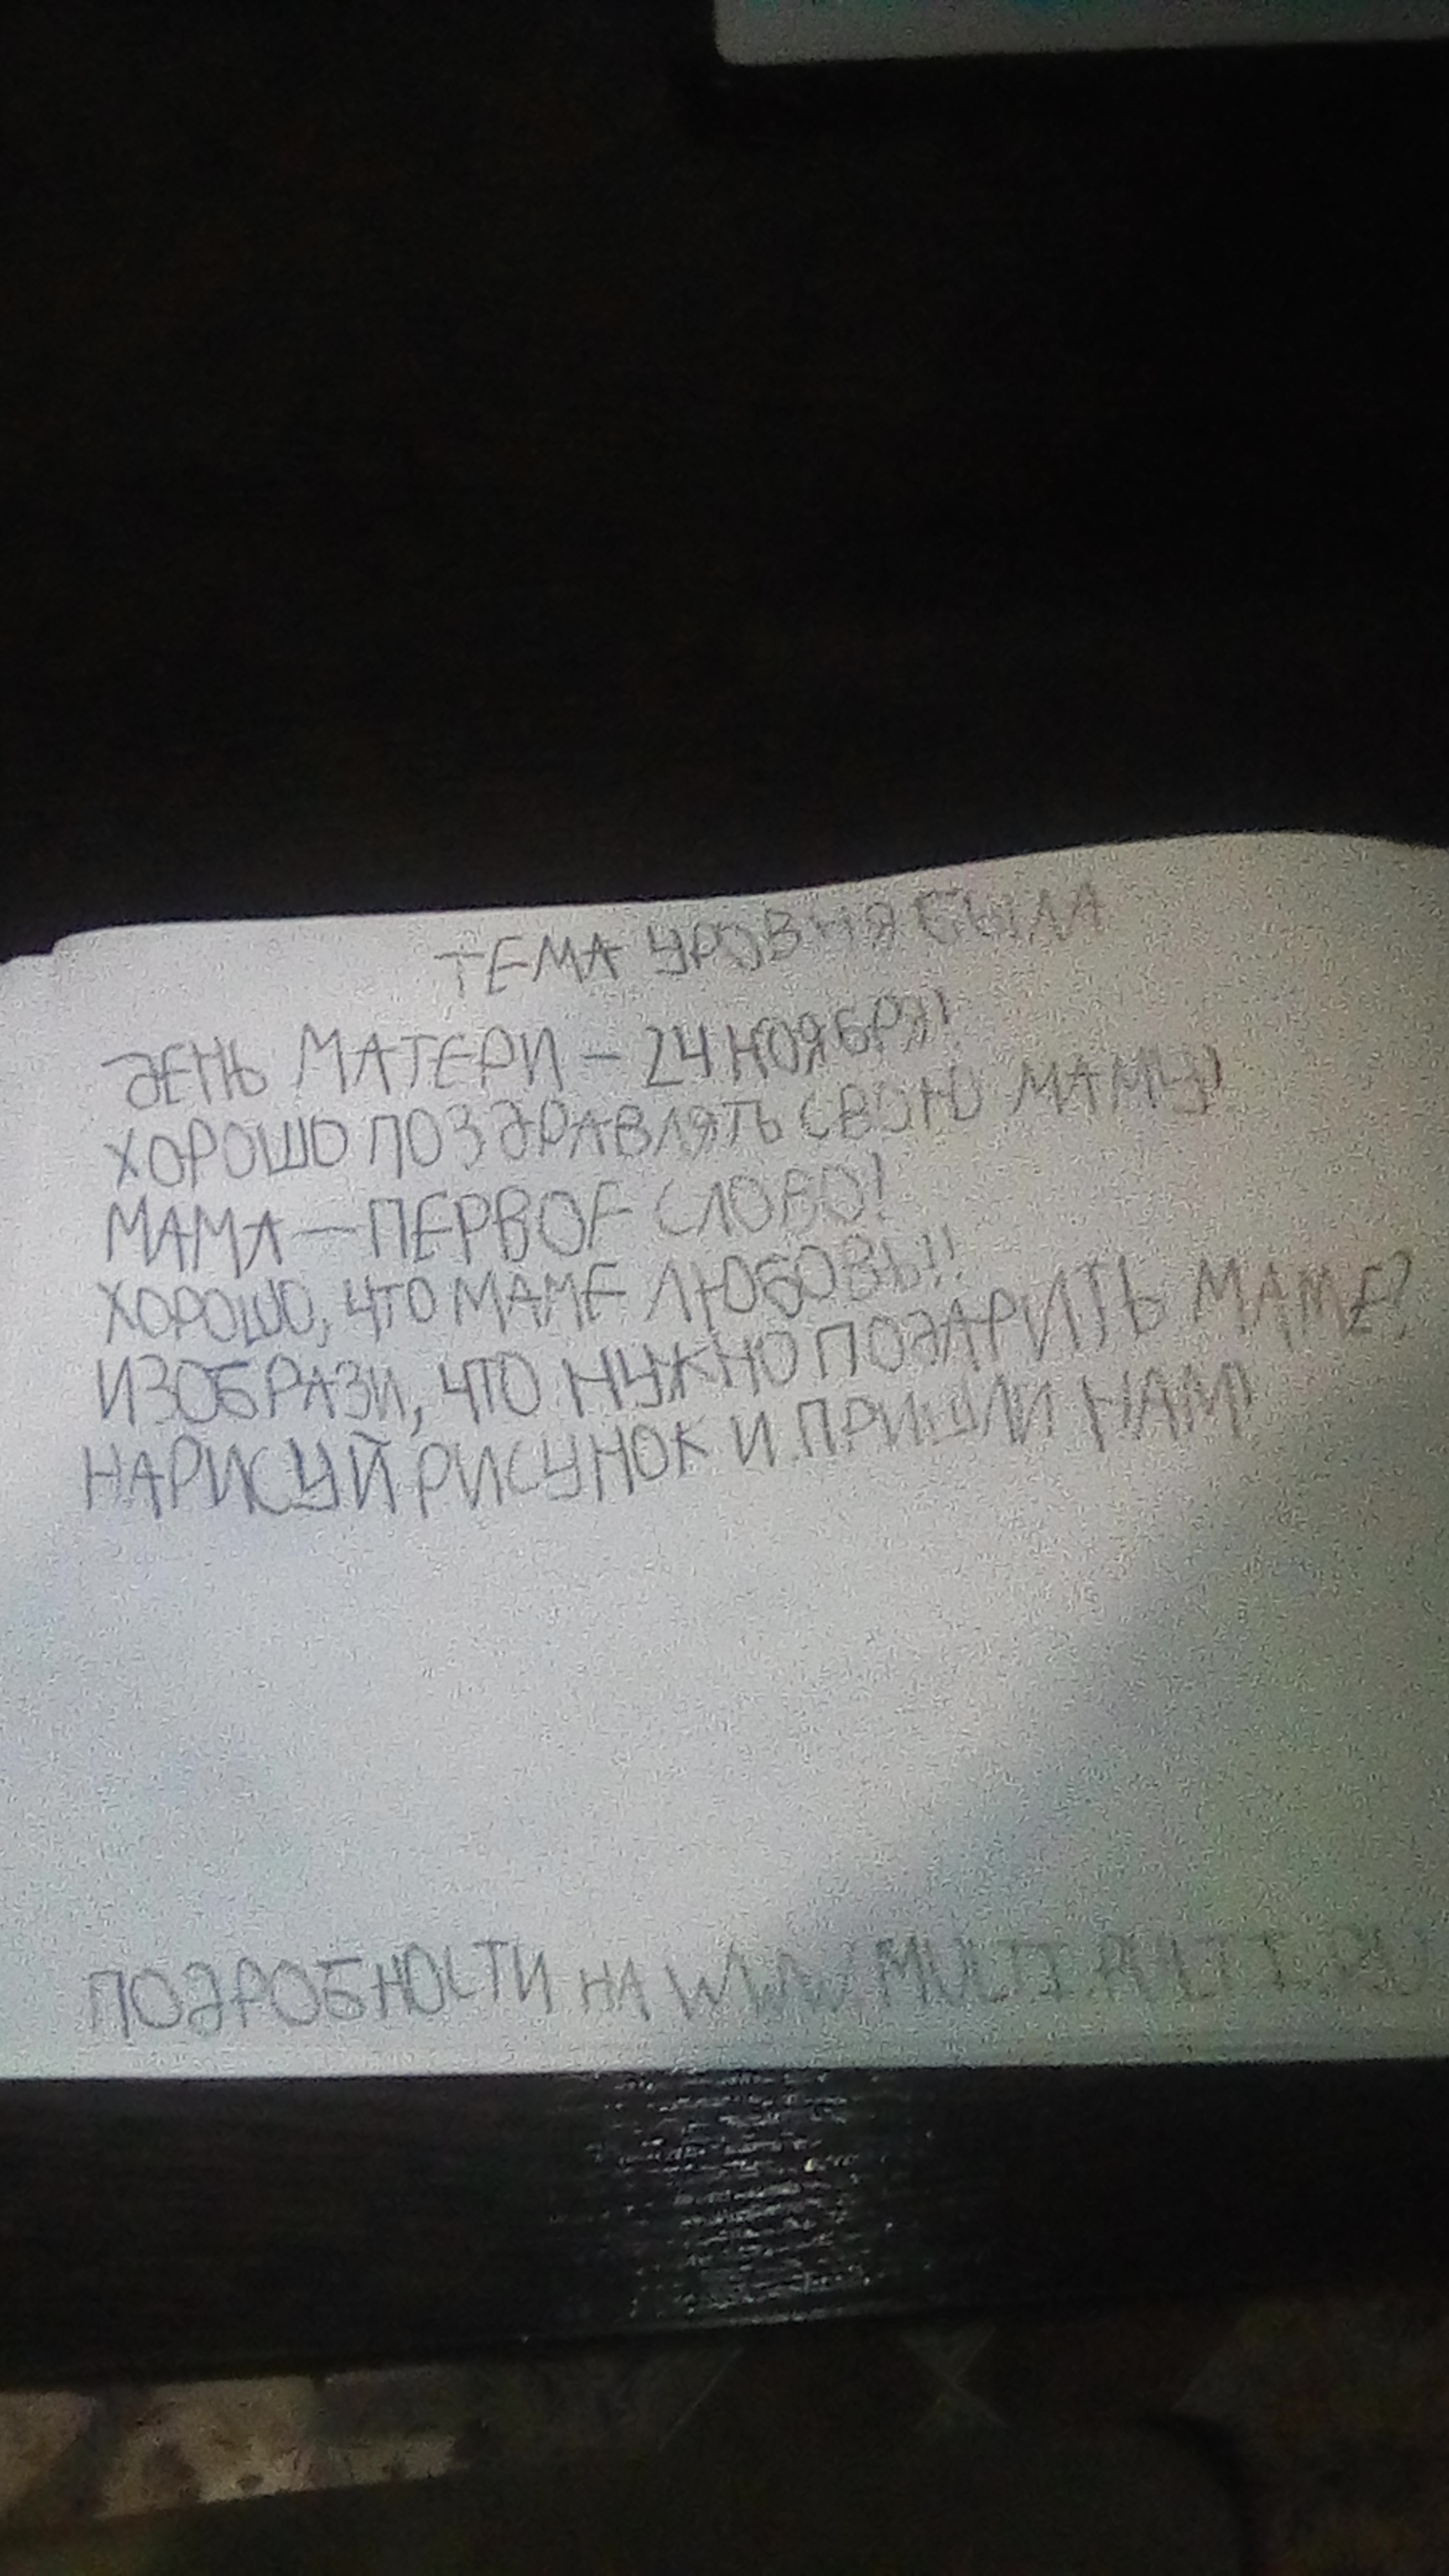 ТЕМА УРОВНЯ БЫЛА
ДЕНЬ МАТЕРИ – 24 НОЯБРЯ!
ХОРОШО ПОЗДРАВЛЯТЬ СВОЮ МАМУ!
МАМА – ПЕРВОЕ СЛОВО!
ХОРОШО, ЧТО МАМЕ ЛЮБОВЬ!!
ИЗОБРАЗИ, ЧТО НУЖНО ПОДАРИТЬ МАМЕ?
НАРИСУЙ РИСУНОК И ПРИШЛИ НАМ!
ПОДРОБНОСТИ НА WWW.MULTI.PULTI.RU